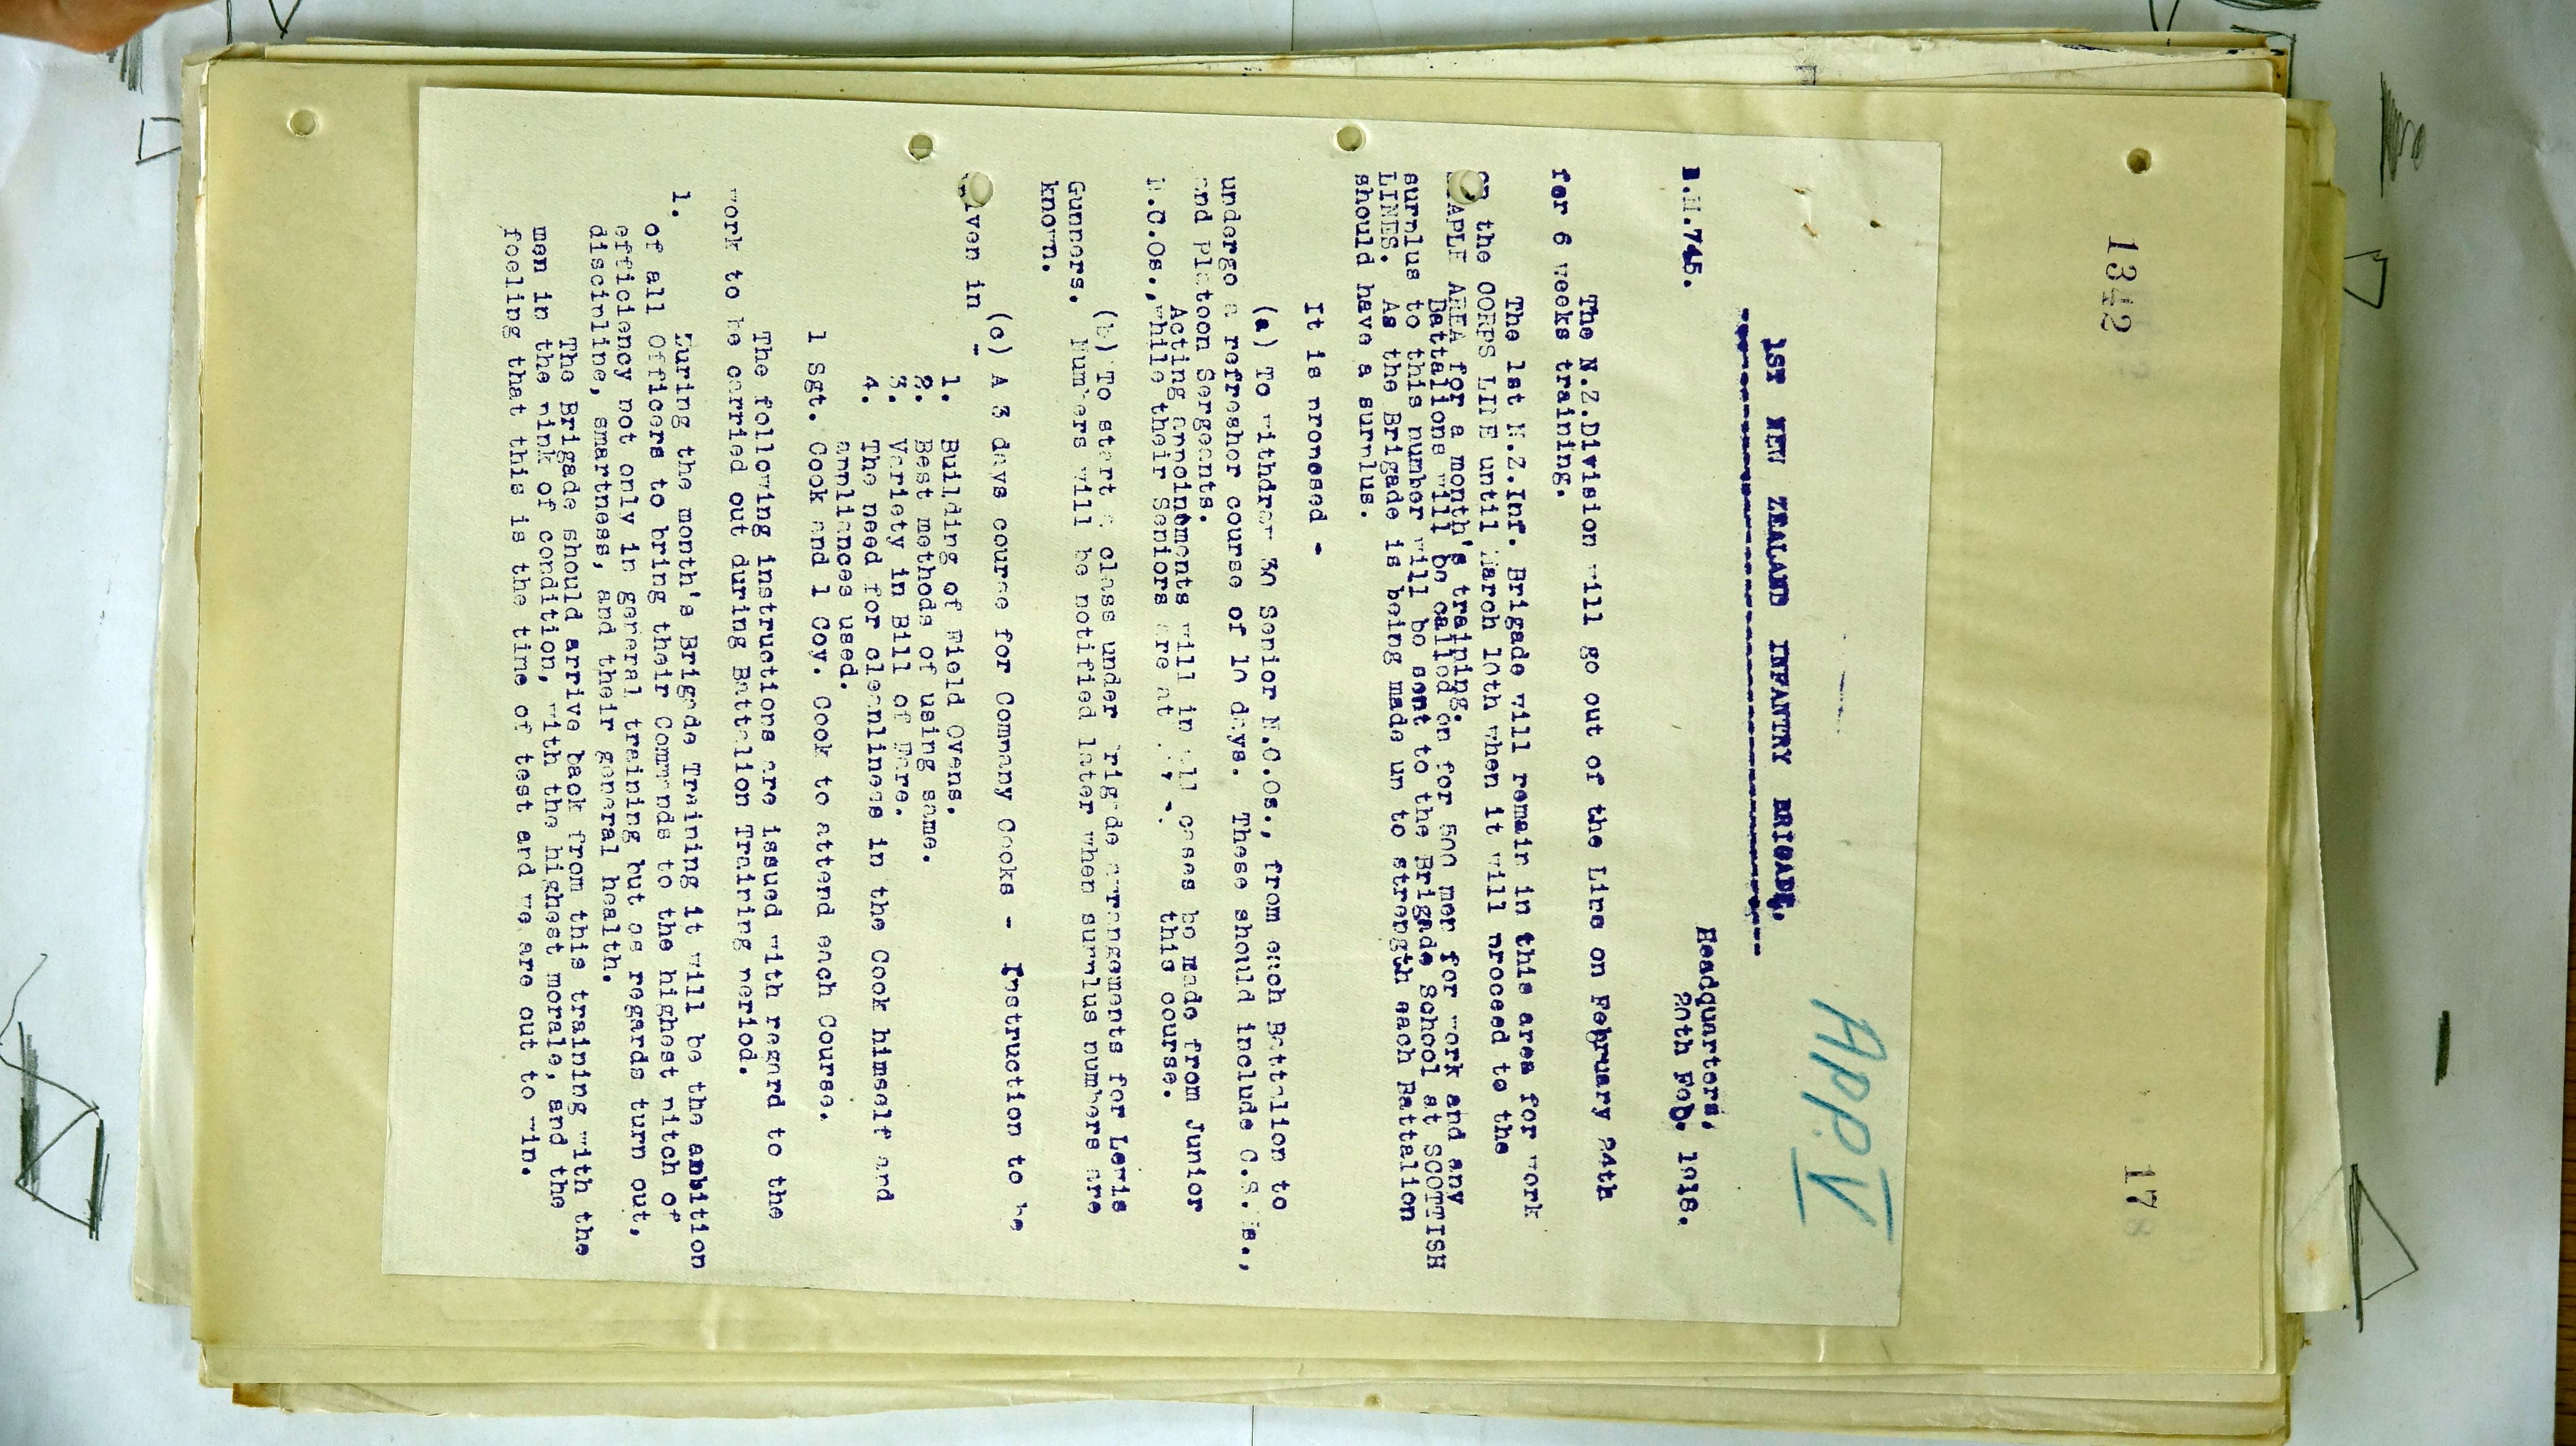 1342
17
APP. V
1ST NEW ZEALAND INFANTRY BRIGADE.
Headquarters,
B.M.745. 20th Feb. 1918.
The N.Z.Division will go out of the Line on February 24th
for 6 weeks training.
The 1st N.Z.Inf. Brigade will remain in this area for work
the CORPS LINE until March 10th when it will proceed to the
AREA for a month's training.
Battalions will be called on for 500 men for work and any
surplus to this number will be sent to the Brigade School at SCOTTISH
LINES. As the Brigade is being made up to strength each Battalion
should have a surplus.
It is proposed -
(a) To withdraw 30 Senior N.C.Os., from each Battalion to
undergo a refresher course of 10 days. These should include C.S.Ms.,
and Platoon Sergeants.
Acting appointments will in all cases be made from Junior
N.C.Os., while their Seniors are at this course.
(b) To start a class under Brigade arrangements for Lewis
Gunners. Numbers will be notified later when surplus numbers are
known.
(c) A 3 days course for Company Cooks - Instruction to be
given in -
1. Building of Field Ovens.
2. Best methods of using same.
3. Variety in Bill of Fare.
4. The need for cleanliness in the Cook himself and
appliances used.
1 Sgt. Cook and 1 Coy. Cook to attend each Course.
The following instructions are issued with regard to the
work to be carried out during Battalion Training period.
1. During the month's Brigade Training it will be the ambition
of all Officers to bring their Commands to the highest pitch of
efficiency not only in general training but as regards turn out,
discipline, smartness, and their general health.
The Brigade should arrive back from this training with the
men in the pink of condition, with the highest morale, and the
feeling that this is the time of test and we are out to win.